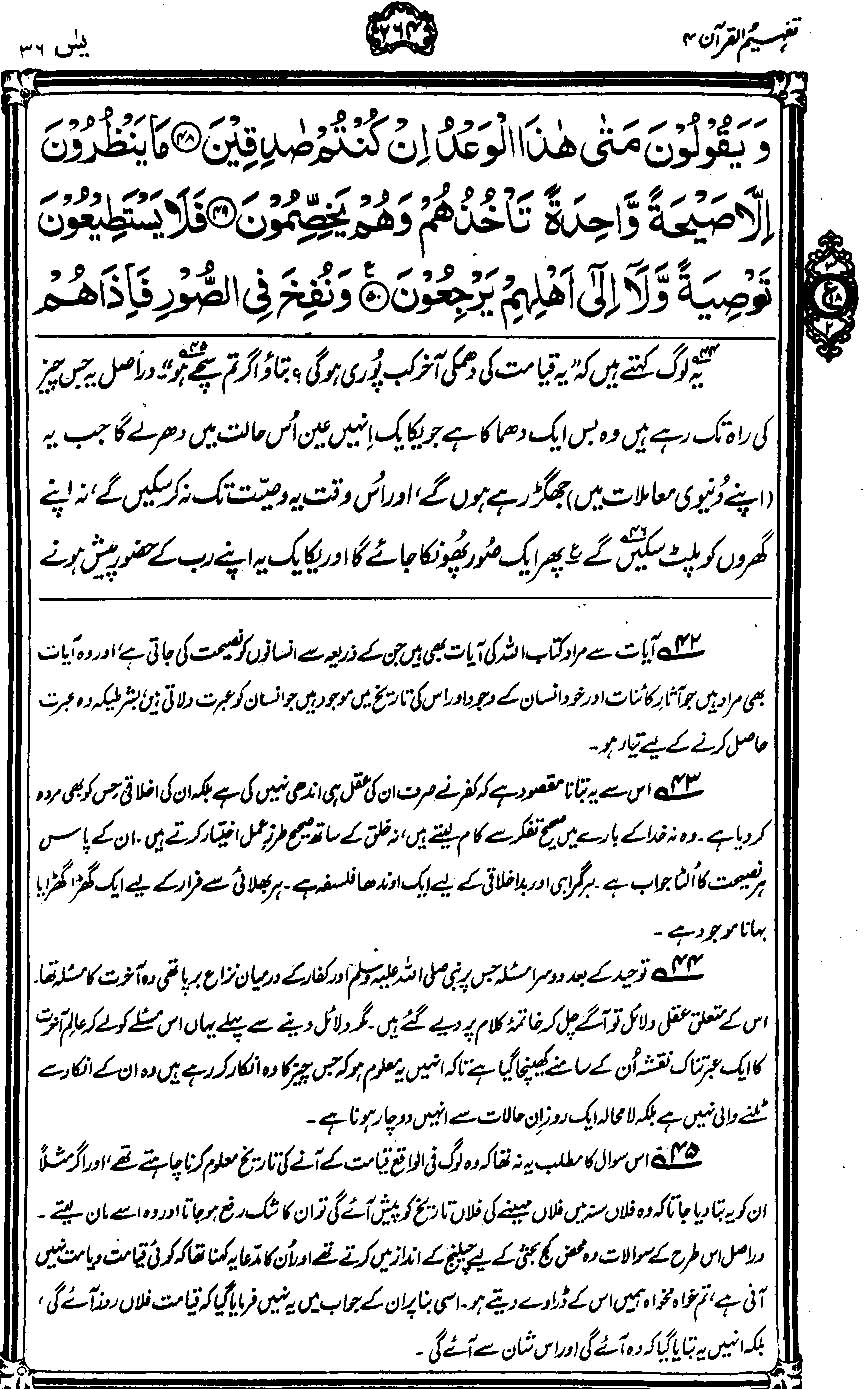 تفہیم القرآن ۴
۲۶۴
یٰسٓ ۳۶
وَيَقُوْلُوْنَ مَتٰى هٰذَا الْوَعْدُ اِنْ كُنْتُمْ صٰدِقِيْنَ ۴۸ مَا يَنْظُرُوْنَ
اِلَّا صَيْحَةً وَّاحِدَةً تَاْخُذُهُمْ وَهُمْ يَخِصِّمُوْنَ ۴۹ فَلَا يَسْتَطِيْعُوْنَ
تَوْصِيَةً وَّلَآ اِلٰٓى اَهْلِهِمْ يَرْجِعُوْنَ ۵۰ ع وَنُفِخَ فِي الصُّوْرِ فَاِذَا هُمْ
یہ۴۴ لوگ کہتے ہیں کہ ”یہ قیامت کی دھمکی آخر کب پُوری ہوگی؟ بتاؤ اگر تم سچے ہو“۴۵۔ دراصل یہ جس چیز
کی راہ تک رہے ہیں وہ بس ایک دھماکا ہے جو یکایک اِنہیں عین اُس حالت میں دھر لے گا جب یہ
(اپنے دُنیوی معاملات میں) جھگڑ رہے ہوں گے، اور اُس وقت یہ وصیّت تک نہ کر سکیں گے، نہ اپنے
گھروں کو پلٹ سکیں۴۶ گے ؏ پھر ایک صُور پھُونکا جائے گا اور یکایک یہ اپنے رب کے حضور پیش ہونے
۴۲؎ آیات سے مراد کتاب اللہ کی آیات بھی ہیں جن کے ذریعہ سے انسانوں کو نصیحت کی جاتی ہے، اور وہ آیات
بھی مراد ہیں جو آثارِ کائنات اور خود انسان کے وجود اور اس کی تاریخ میں موجود ہیں جو انسان کو عبرت دلاتی ہیں، بشرطیکہ وہ عبرت
حاصل کرنے کے لیے تیار ہو۔
۴۳؎ اس سے یہ بتانا مقصود ہے کہ کفر نے صرف ان کی عقل ہی اندھی نہیں کی ہے بلکہ ان کی اخلاقی حِس کو بھی مردہ
کر دیا ہے۔ وہ نہ خدا کے بارے میں صحیح تفکر سے کام لیتے ہیں، نہ خلق کے ساتھ صحیح طرزِ عمل اختیار کرتے ہیں۔ ان کے پاس
ہر نصیحت کا اُلٹا جواب ہے۔ ہر گمراہی اور بد اخلاقی کے لیے ایک اوندھا فلسفہ ہے۔ ہر بھلائی سے فرار کے لیے ایک گھڑا گھڑایا
بہانا موجود ہے۔
۴۴؎ توحید کے بعد دوسرا مسئلہ جس پر نبی صلی اللہ علیہ وسلم اور کفار کے درمیان نزاع برپا تھی وہ آخرت کا مسئلہ تھا۔
اس کے متعلق عقلی دلائل تو آگے چل کر خاتمۂ کلام پر دیے گئے ہیں۔ مگر دلائل دینے سے پہلے یہاں اس مسئلے کو لے کر عالمِ آخرت
کا ایک عبرتناک نقشہ اُن کے سامنے کھینچا گیا ہے تاکہ انہیں یہ معلوم ہو کہ جس چیز کا وہ انکار کر رہے ہیں وہ ان کے انکار سے
ٹلنے والی نہیں ہے بلکہ لامحالہ ایک روز اِن حالات سے انہیں دوچار ہونا ہے۔
۴۵؎ اس سوال کا مطلب یہ نہ تھا کہ وہ لوگ فی الواقع قیامت کے آنے کی تاریخ معلوم کرنا چاہتے تھے، اور اگر مثلاً
ان کو یہ بتا دیا جاتا کہ وہ فلاں سنہ میں فلاں مہینے کی فلاں تاریخ کو پیش آئے گی تو ان کا شک رفع ہو جاتا اور وہ اسے مان لیتے۔
دراصل اس طرح کے سوالات وہ محض کج بحثی کے لیے چیلنج کے انداز میں کرتے تھے اور اُن کا مدّعا یہ کہنا تھا کہ کوئی قیامت ویامت نہیں
آنی ہے، تم خواہ مخواہ ہمیں اس کے ڈراوے دیتے ہو۔ اسی بنا پر ان کے جواب میں یہ نہیں فرمایا گیا کہ قیامت فلاں روز آئے گی،
بلکہ انہیں یہ بتایا گیا کہ وہ آئے گی اور اس شان سے آئے گی۔